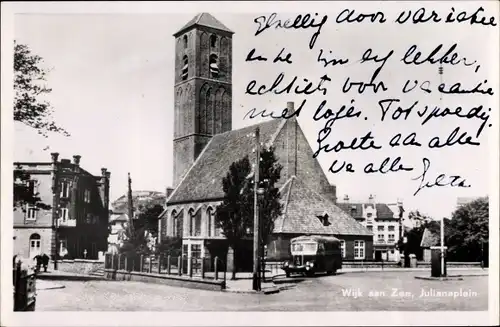 gezellig door variatie
en we zijn erg lekker,
echt iets voor vacantie
met logés. Tot spoedig.
Groete aan alle
va alle
Greta
Wijk aan Zee, Julianaplein